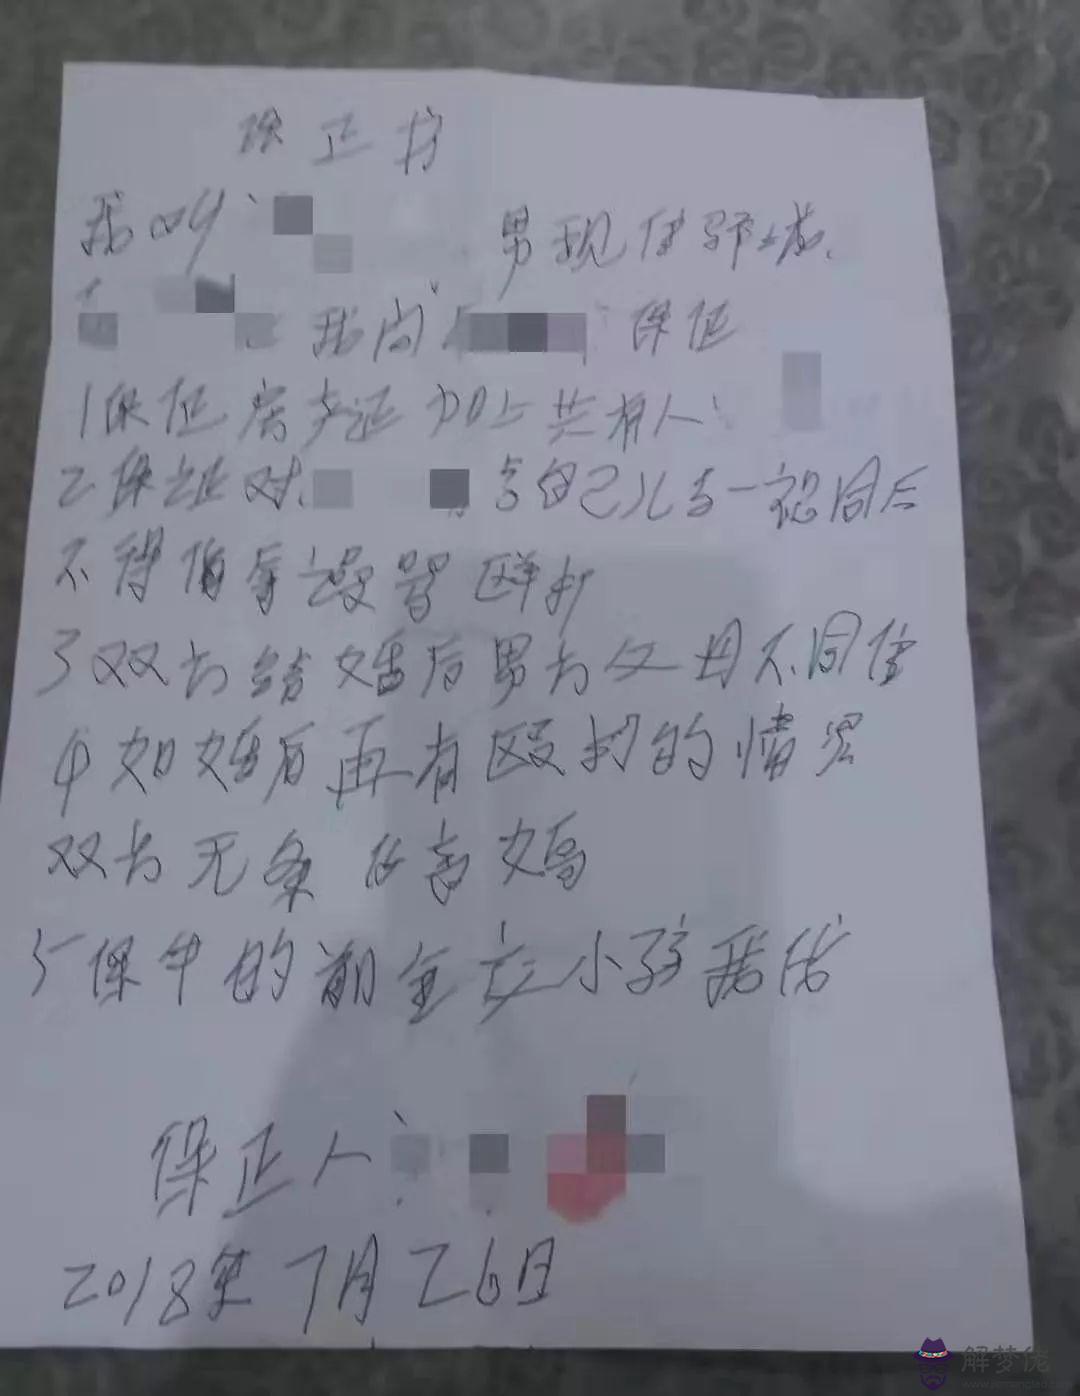 保正书
我叫: 男现住郓城
我向 保证
1保证房产证加上共有人:
2保证对 与自己儿子一视同仁
不得侮辱谩骂殴打
3双方结婚后男方父母不同住
4如婚后再有殴打的情况
双方无条件离婚
5保牛的期 小孩我扶
保正人:
2018年7月26日
解梦佬